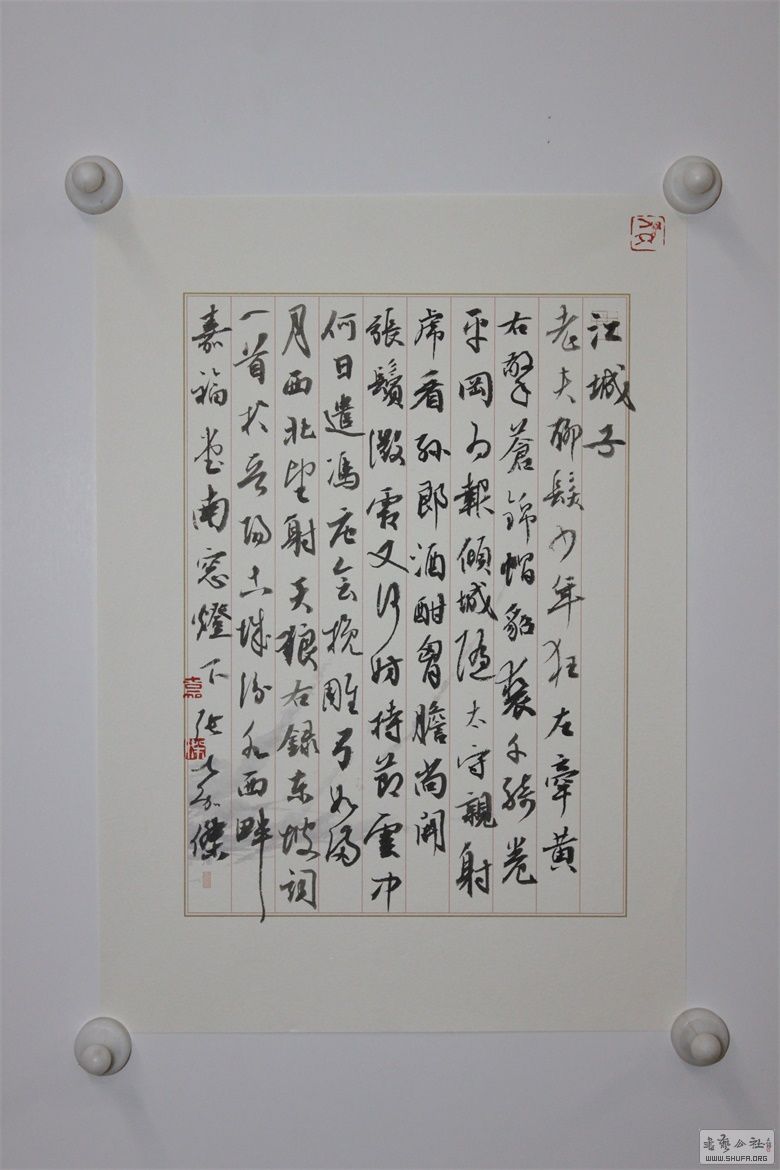 江城子
老夫聊髮少年狂左牽黃
右擎蒼錦帽貂裘千騎卷
平岡為報傾城隨太守親射
虎看孫郎酒酣胷膽尚開
張鬢微霜又何妨持節雲中
何日遣馮唐會挽雕弓如滿
月西北望射天狼右錄東坡詞
一首於晉陽古城汾水西畔
嘉福堂南窓燈下張嘉傑
WWW.SHUFA.ORG